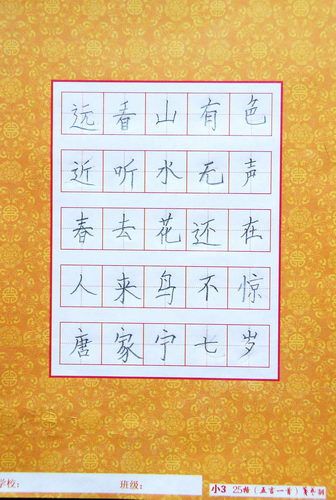 远看山有色
近听水无声
春去花还在
人来鸟不惊
唐家宁七岁
学校： 班级：
小3 25格（五言一首）